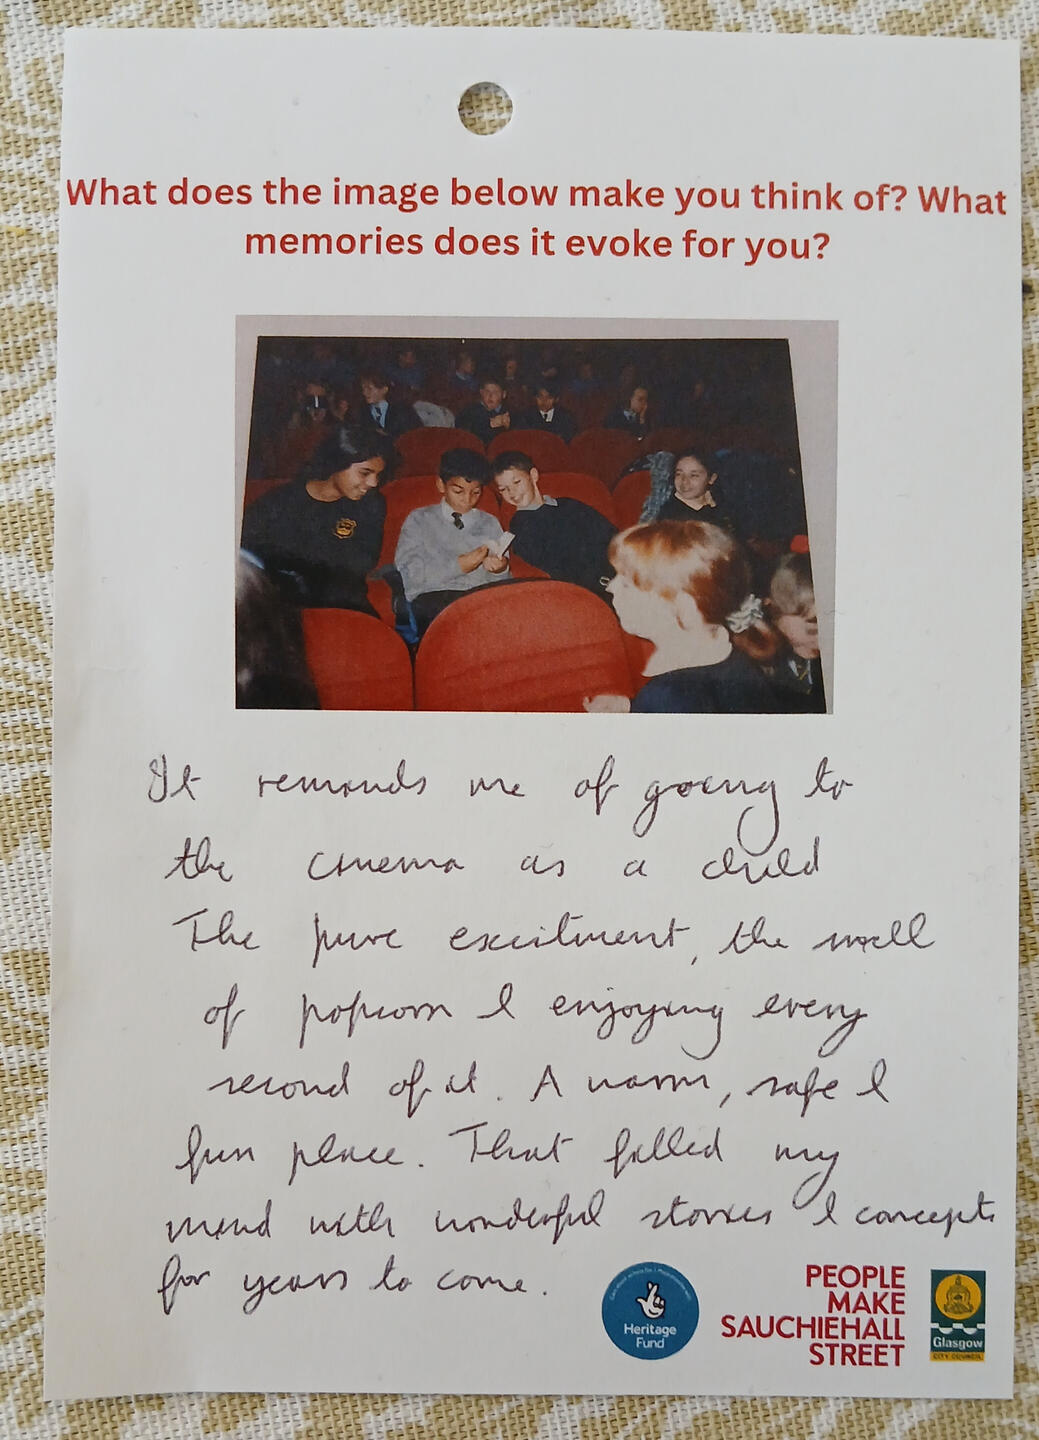 What does the image below make you think of? What
memories does it evoke for you?
It reminds me of going to
the cinema as a child
The pure excitment, the smell
of popcorn & enjoying every
second of it. A warm, safe &
fun place. That filled my
mind with wonderful stories & concepts
for years to come.
Heritage
Fund
PEOPLE
MAKE
SAUCHIEHALL
STREET
Glasgow
CITY COUNCIL